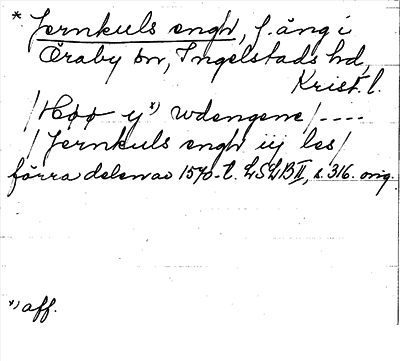 * Jernkuls engh, f. äng i
Öraby sn, Ingelstads hd,
Krist. l.
/Høø y *) wdengene/----
/Jernkuls engh iij les/
förra delen av 1570-t. LSLB II, s. 316. orig.
*) aff.